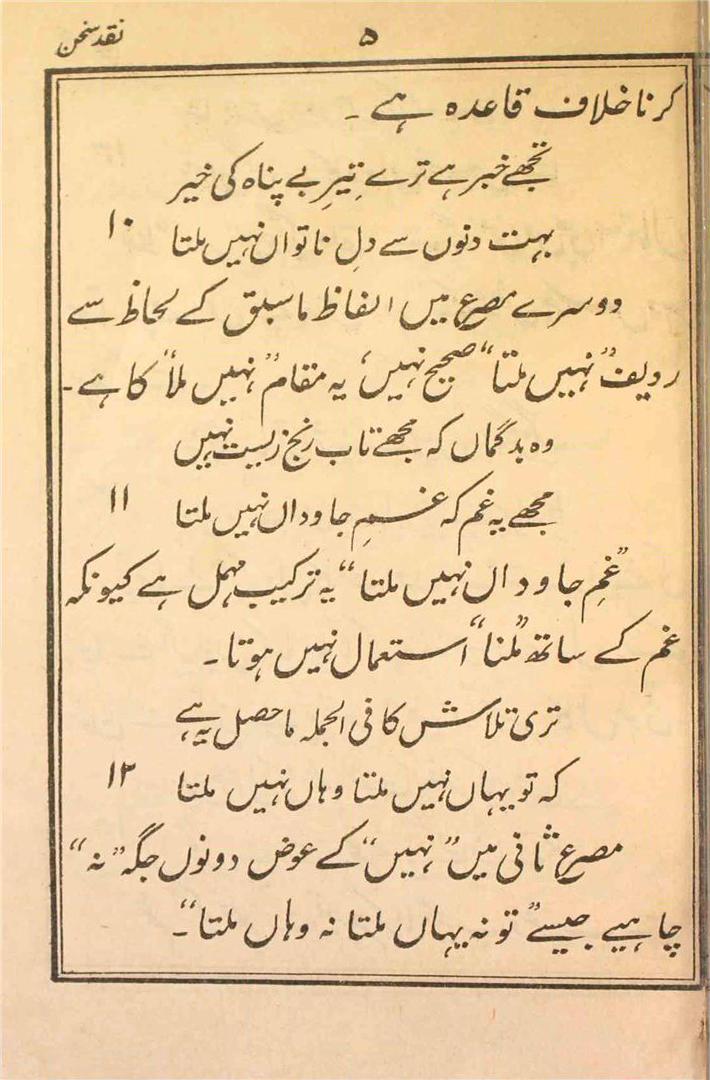 نقد سخن
۵
کرنا خلاف قاعدہ ہے ۔
تجھے خبر ہے ترے تیرِ بے پناہ کی خیر
بہت دنوں سے دلِ ناتواں نہیں ملتا ۱۰
دوسرے مصرع میں الفاظ ماسبق کے لحاظ سے
ردیف "نہیں ملتا" صحیح نہیں، یہ مقام "نہیں ملا" کا ہے ۔
وہ بدگماں کہ مجھے تاب رنج زیست نہیں
مجھے یہ غم کہ غمِ جاوداں نہیں ملتا ۱۱
"غمِ جاوداں نہیں ملتا" یہ ترکیب مہمل ہے کیونکہ
غم کے ساتھ "ملنا" استعمال نہیں ہوتا ۔
تری تلاش کا فی الجملہ ماحصل یہ ہے
کہ تو یہاں نہیں ملتا وہاں نہیں ملتا ۱۲
مصرع ثانی میں "نہیں" کے عوض دونوں جگہ "نہ"
چاہیے جیسے "تو نہ یہاں ملتا نہ وہاں ملتا" ۔